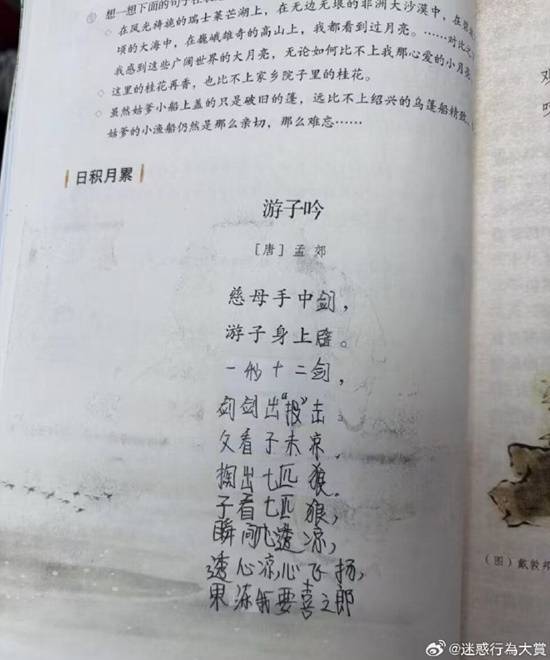 想一想下面的句子在表
在风光旖旎的瑞士莱芒湖上,在无边无垠的非洲大沙漠中,在碧
顷的大海中,在巍峨雄奇的高山上,我都看到过月亮。……对比之
我感到这些广阔世界的大月亮,无论如何比不上我那心爱的小月亮。
◇ 这里的桂花再香,也比不上家乡院子里的桂花。
◇ 虽然姑爹小船上盖的只是破旧的篷,远比不上绍兴的乌篷船精致,
姑爹的小渔船仍然是那么亲切,那么难忘……
日积月累
游子吟
[唐]孟 郊
慈母手中剑,
游子身上劈。
一秒十二剑,
剑剑出“投”击。
父看子未凉,
掏出七匹狼。
子看七匹狼,
瞬间心透凉,
透心凉,心飞扬,
果冻我要喜之郎
(图)戴敦邦
@迷惑行為大賞